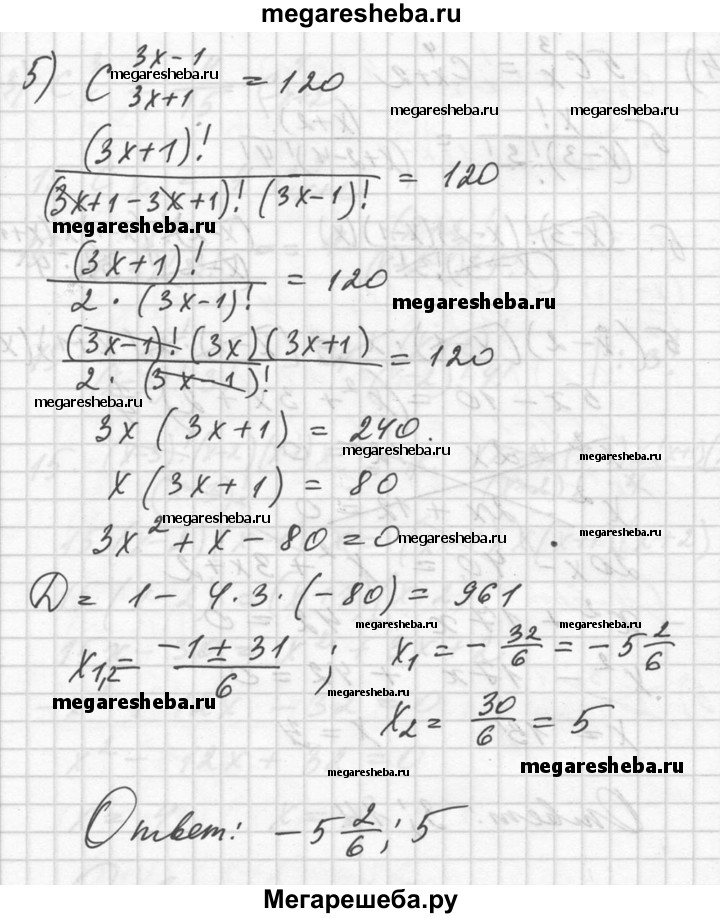 megaresheba.ru
5) C 3x-1 3x+1 = 120
megaresheba.ru megaresheba.ru
(3x+1)! / (3x+1-3x+1)! (3x-1)! = 120
megaresheba.ru
(3x+1)! / 2 · (3x-1)! = 120
megaresheba.ru
(3x-1)! (3x)(3x+1) / 2 · (3x-1)! = 120
megaresheba.ru
3x (3x+1) = 240.
megaresheba.ru megaresheba.ru
x (3x+1) = 80
megaresheba.ru
3x² + x - 80 = 0
megaresheba.ru megaresheba.ru
D = 1 - 4·3·(-80) = 961
megaresheba.ru megaresheba.ru
x1,2 = -1 ± 31 / 6 ; x1 = - 32/6 = -5 2/6
megaresheba.ru
x2 = 30/6 = 5
megaresheba.ru megaresheba.ru
Ответ: -5 2/6; 5
megaresheba.ru
Мегарешеба.ру